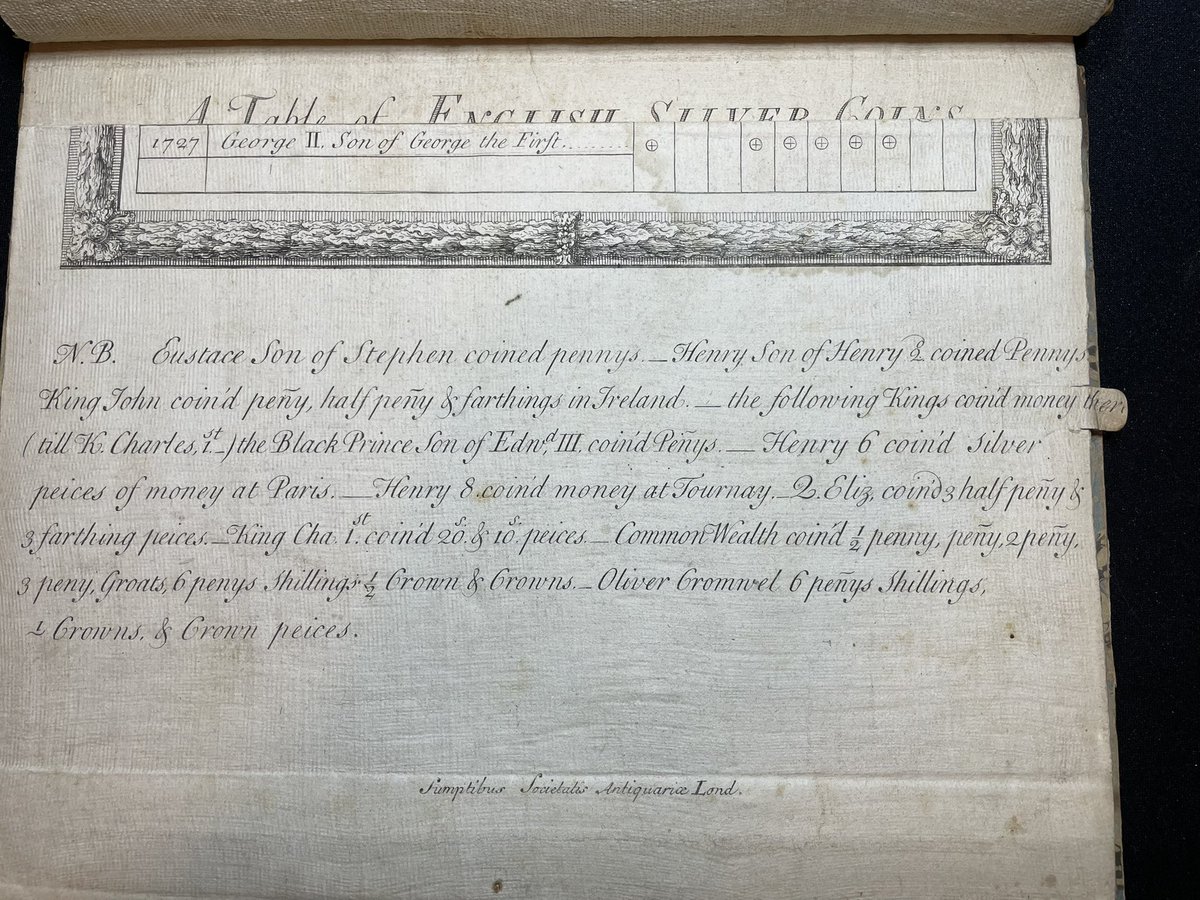 A Table of ENGLISH SILVER COINS
1727 George II. Son of George the First.........
N.B. Eustace Son of Stephen coined pennys. — Henry Son of Henry 2d coined Pennys
King John coin'd peñy, half peñy & farthings in Ireland. — the following Kings coin'd money ther
(till K. Charles, 1st.) the Black Prince Son of Edwd, III. coin'd Peñys. — Henry 6 coin'd silver
peices of money at Paris. — Henry 8 coin'd money at Tournay. — Q. Eliz. coin'd 3 half peñy &
3 farthing peices. — King Cha. 1st. coin'd 20s. & 10s. peices. — Common Wealth coin'd ½ penny, peñy, 2 peñy,
3 peny, Groats, 6 penys Shillings ½ Crown & Crowns. — Oliver Cromwel 6 peñys Shillings,
Crowns, & Crown peices.
Sumptibus Societatis Antiquariæ Lond.